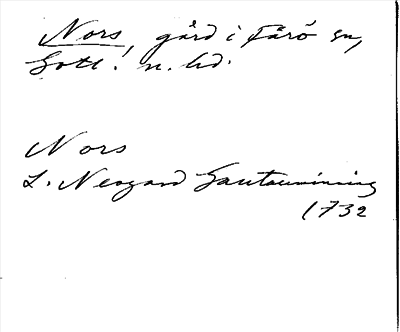 Nors, gård i Fårö sn,
Gotl. n. hd.
Nors
L. Neogard Gautauminning
1732